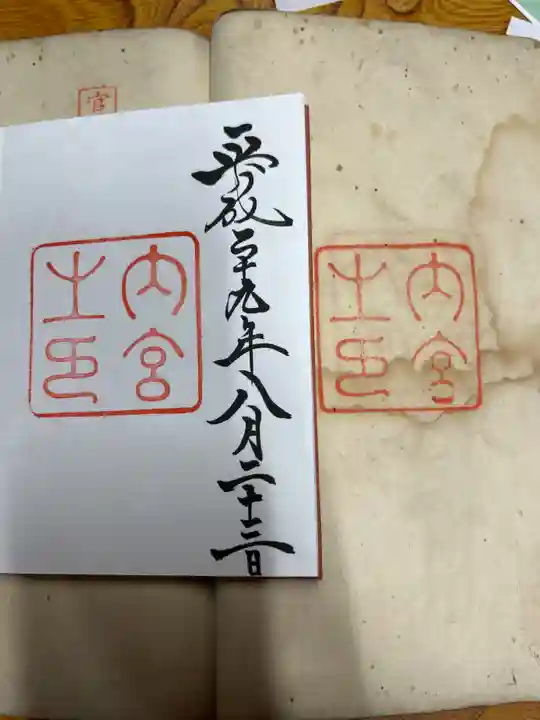 内宮
之印
平成二十九年八月二十三日
内宮
之印
官